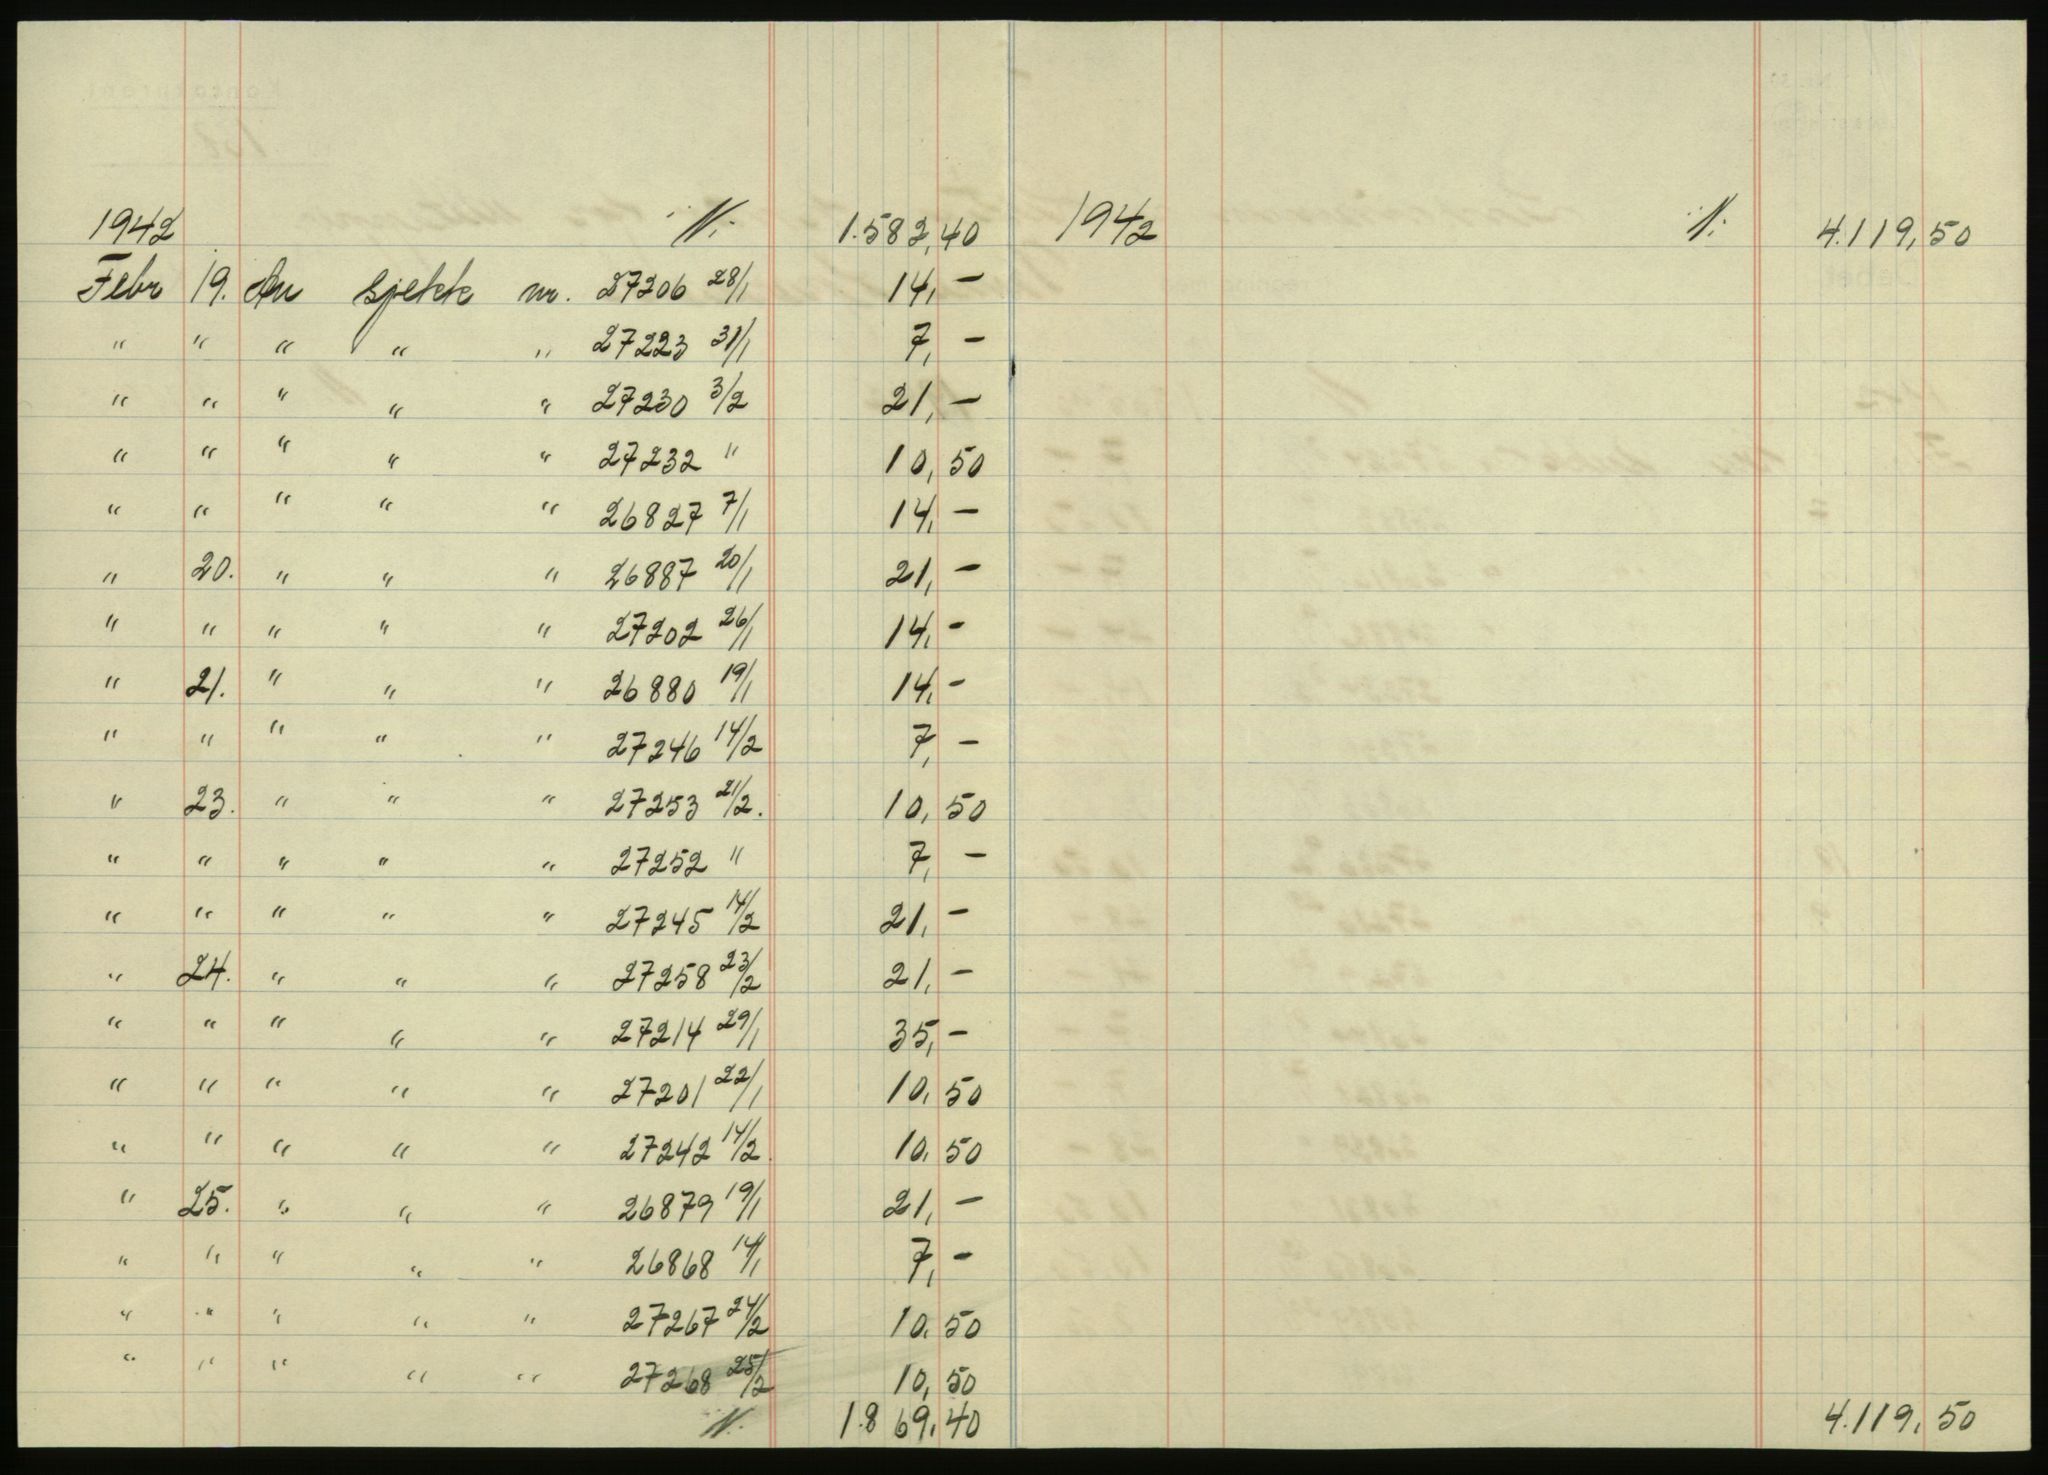 1942 1.582,40
Febr 19. An sjekk nr. 27206 28/1 14,—
" " " " " 27223 31/1 7,—
" " " " " 27230 3/2 21,—
" " " " " 27232 " 10,50
" " " " " 26827 7/1 14,—
" 20. " " " 26887 20/1 21,—
" " " " " 27202 26/1 14,—
" 21. " " " 26880 19/1 14,—
" " " " " 27246 14/2 7,—
" 23. " " " 27253 21/2. 10,50
" " " " " 27252 " 7,—
" " " " " 27245 14/2 21,—
" 24. " " " 27258 23/2 21,—
" " " " " 27214 29/1 35,—
" " " " " 27201 22/1 10,50
" " " " " 27242 14/2 10,50
" 25. " " " 26879 19/1 21,—
" " " " " 26868 14/1 7,—
" " " " " 27267 24/2 10,50
" " " " " 27268 25/2 10,50
1.869,40
1942 4.119,50
4.119,50